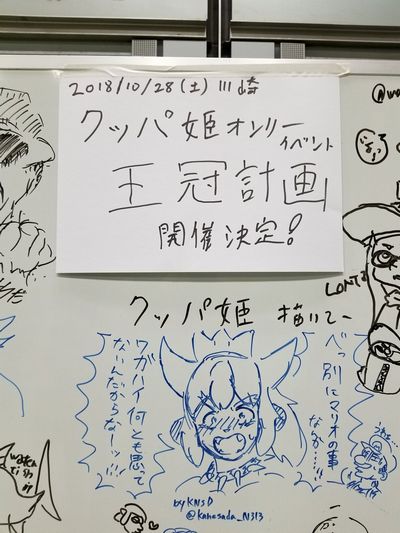 2018/10/28(土)川崎
クッパ姫オンリー
イベント
王冠計画
開催決定!
クッパ姫 描いてー
べっ別にマリオの事
なぁ…!!
ワガハイ何とも思って
ないんだからなーッ…!!!
by KNSD
@kanesada_N313